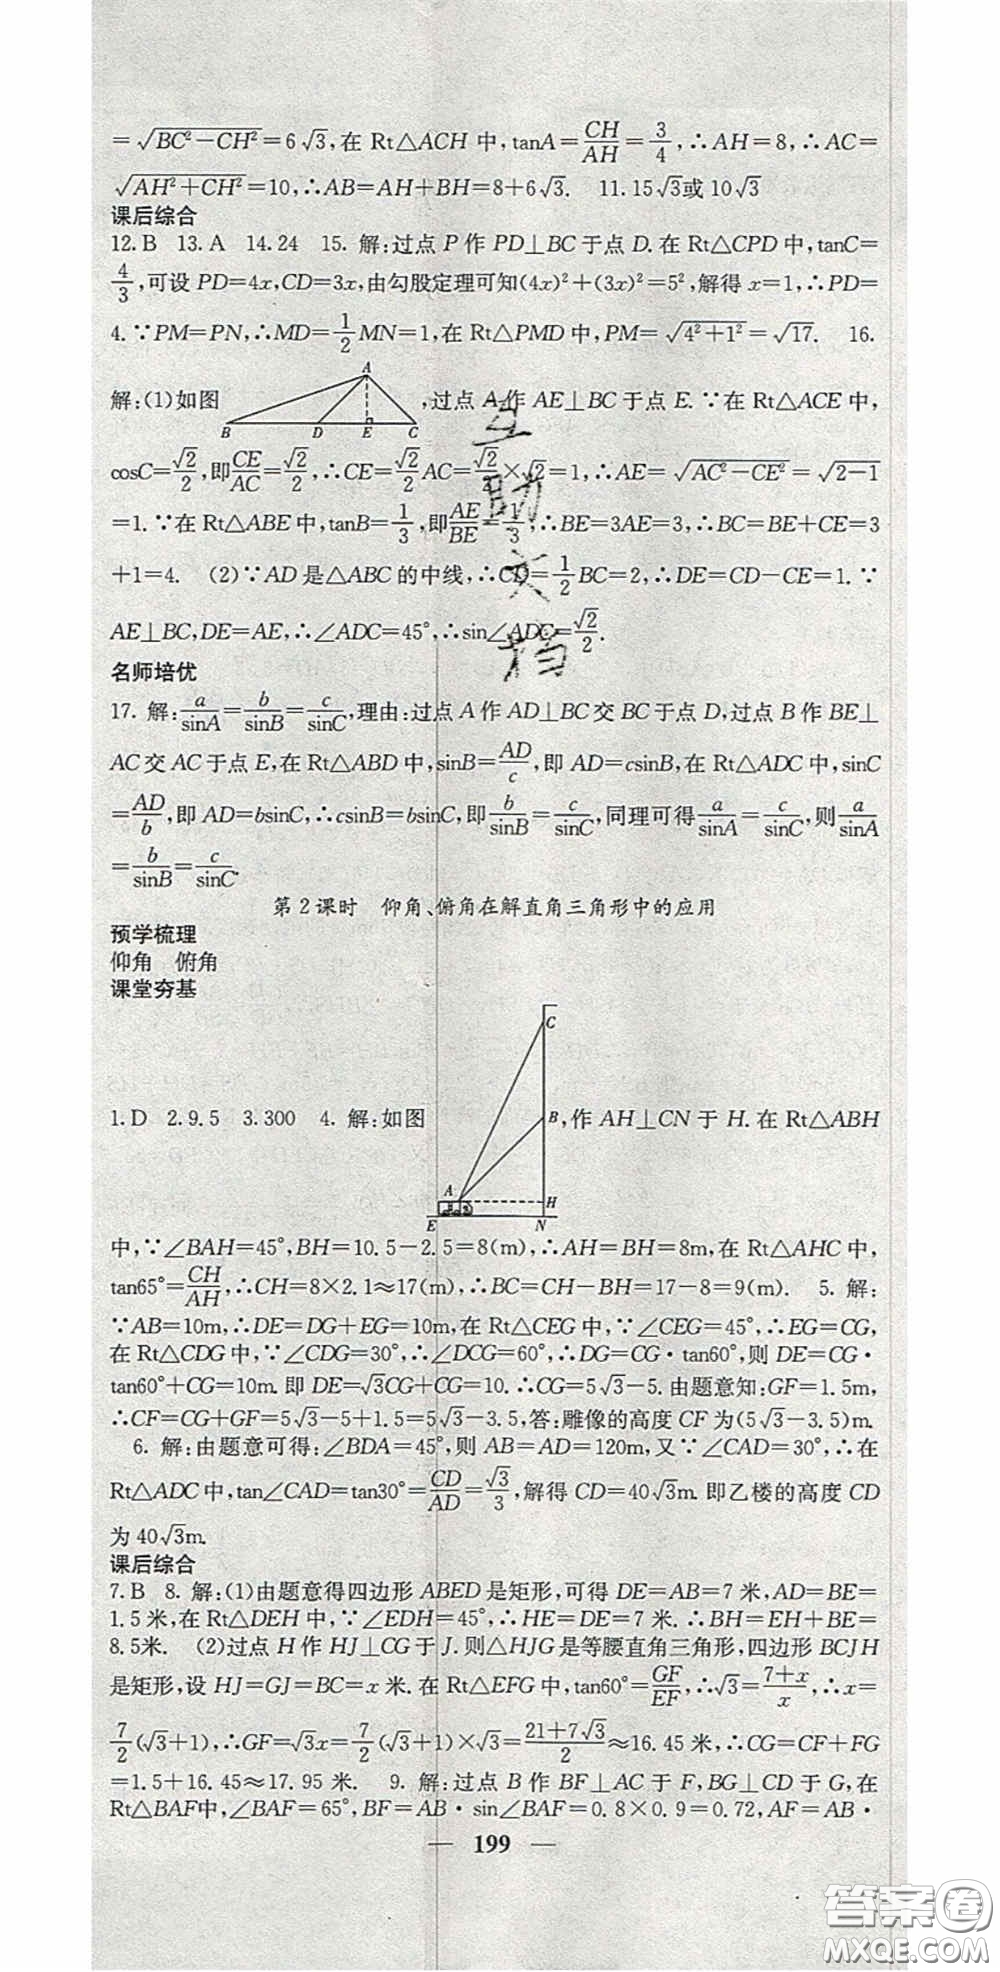 =√(BC²−CH²)=6√3,在 Rt△ACH 中,tanA=CH/AH=3/4,∴AH=8,∴AC=
√(AH²+CH²)=10,∴AB=AH+BH=8+6√3. 11.15√3或10√3
课后综合
12.B 13.A 14.24 15. 解:过点 P 作 PD⊥BC 于点 D. 在 Rt△CPD 中,tanC=
4/3,可设 PD=4x,CD=3x,由勾股定理可知(4x)²+(3x)²=5²,解得 x=1,∴PD=
4.∵PM=PN,∴MD=1/2MN=1,在 Rt△PMD 中,PM=√(4²+1²)=√17. 16.
解:(1)如图
A
B D E C
,过点 A 作 AE⊥BC 于点 E.∵在 Rt△ACE 中,
cosC=√2/2,即CE/AC=√2/2,∴CE=√2/2AC=√2/2×√2=1,∴AE=√(AC²−CE²)=√(2−1)
=1.∵在 Rt△ABE 中,tanB=1/3,即AE/BE=1/3,∴BE=3AE=3,∴BC=BE+CE=3
+1=4. (2)∵AD 是△ABC 的中线,∴CD=1/2BC=2,∴DE=CD−CE=1.∵
AE⊥BC,DE=AE,∴∠ADC=45°,∴sin∠ADC=√2/2.
名师培优
17. 解:a/sinA=b/sinB=c/sinC,理由:过点 A 作 AD⊥BC 交 BC 于点 D,过点 B 作 BE⊥
AC 交 AC 于点 E,在 Rt△ABD 中,sinB=AD/c,即 AD=csinB,在 Rt△ADC 中,sinC
=AD/b,即 AD=bsinC,∴csinB=bsinC,即b/sinB=c/sinC,同理可得a/sinA=c/sinC,则a/sinA
=b/sinB=c/sinC.
第 2 课时 仰角、俯角在解直角三角形中的应用
预学梳理
仰角 俯角
课堂夯基
1.D 2.9.5 3.300 4. 解:如图
C
B
A
H
E
N
,作 AH⊥CN 于 H. 在 Rt△ABH
中,∵∠BAH=45°,BH=10.5−2.5=8(m),∴AH=BH=8m,在 Rt△AHC 中,
tan65°=CH/AH,∴CH=8×2.1≈17(m),∴BC=CH−BH=17−8=9(m). 5. 解:
∵AB=10m,∴DE=DG+EG=10m,在 Rt△CEG 中,∵∠CEG=45°,∴EG=CG,
在 Rt△CDG 中,∵∠CDG=30°,∴∠DCG=60°,∴DG=CG·tan60°,则 DE=CG·
tan60°+CG=10m. 即 DE=√3CG+CG=10.∴CG=5√3−5. 由题意知:GF=1.5m,
∴CF=CG+GF=5√3−5+1.5=5√3−3.5,答:雕像的高度 CF 为(5√3−3.5)m.
6. 解:由题意可得:∠BDA=45°,则 AB=AD=120m,又∵∠CAD=30°,∴在
Rt△ADC 中,tan∠CAD=tan30°=CD/AD=√3/3,解得 CD=40√3m. 即乙楼的高度 CD
为 40√3m.
课后综合
7.B 8. 解:(1)由题意得四边形 ABED 是矩形,可得 DE=AB=7 米,AD=BE=
1.5 米,在 Rt△DEH 中,∵∠EDH=45°,∴HE=DE=7 米.∴BH=EH+BE=
8.5米. (2)过点 H 作 HJ⊥CG 于 J. 则△HJG 是等腰直角三角形,四边形 BCJH
是矩形,设 HJ=GJ=BC=x 米. 在 Rt△EFG 中,tan60°=GF/EF,∴√3=(7+x)/x,∴x=
7/2(√3+1),∴GF=√3x=7/2(√3+1)×√3=(21+7√3)/2≈16.45 米,∴CG=CF+FG
=1.5+16.45≈17.95 米. 9. 解:过点 B 作 BF⊥AC 于 F,BG⊥CD 于 G,在
Rt△BAF中,∠BAF=65°,BF=AB·sin∠BAF=0.8×0.9=0.72,AF=AB·
— 199 —
互助文档
答案圈
MXQE.COM